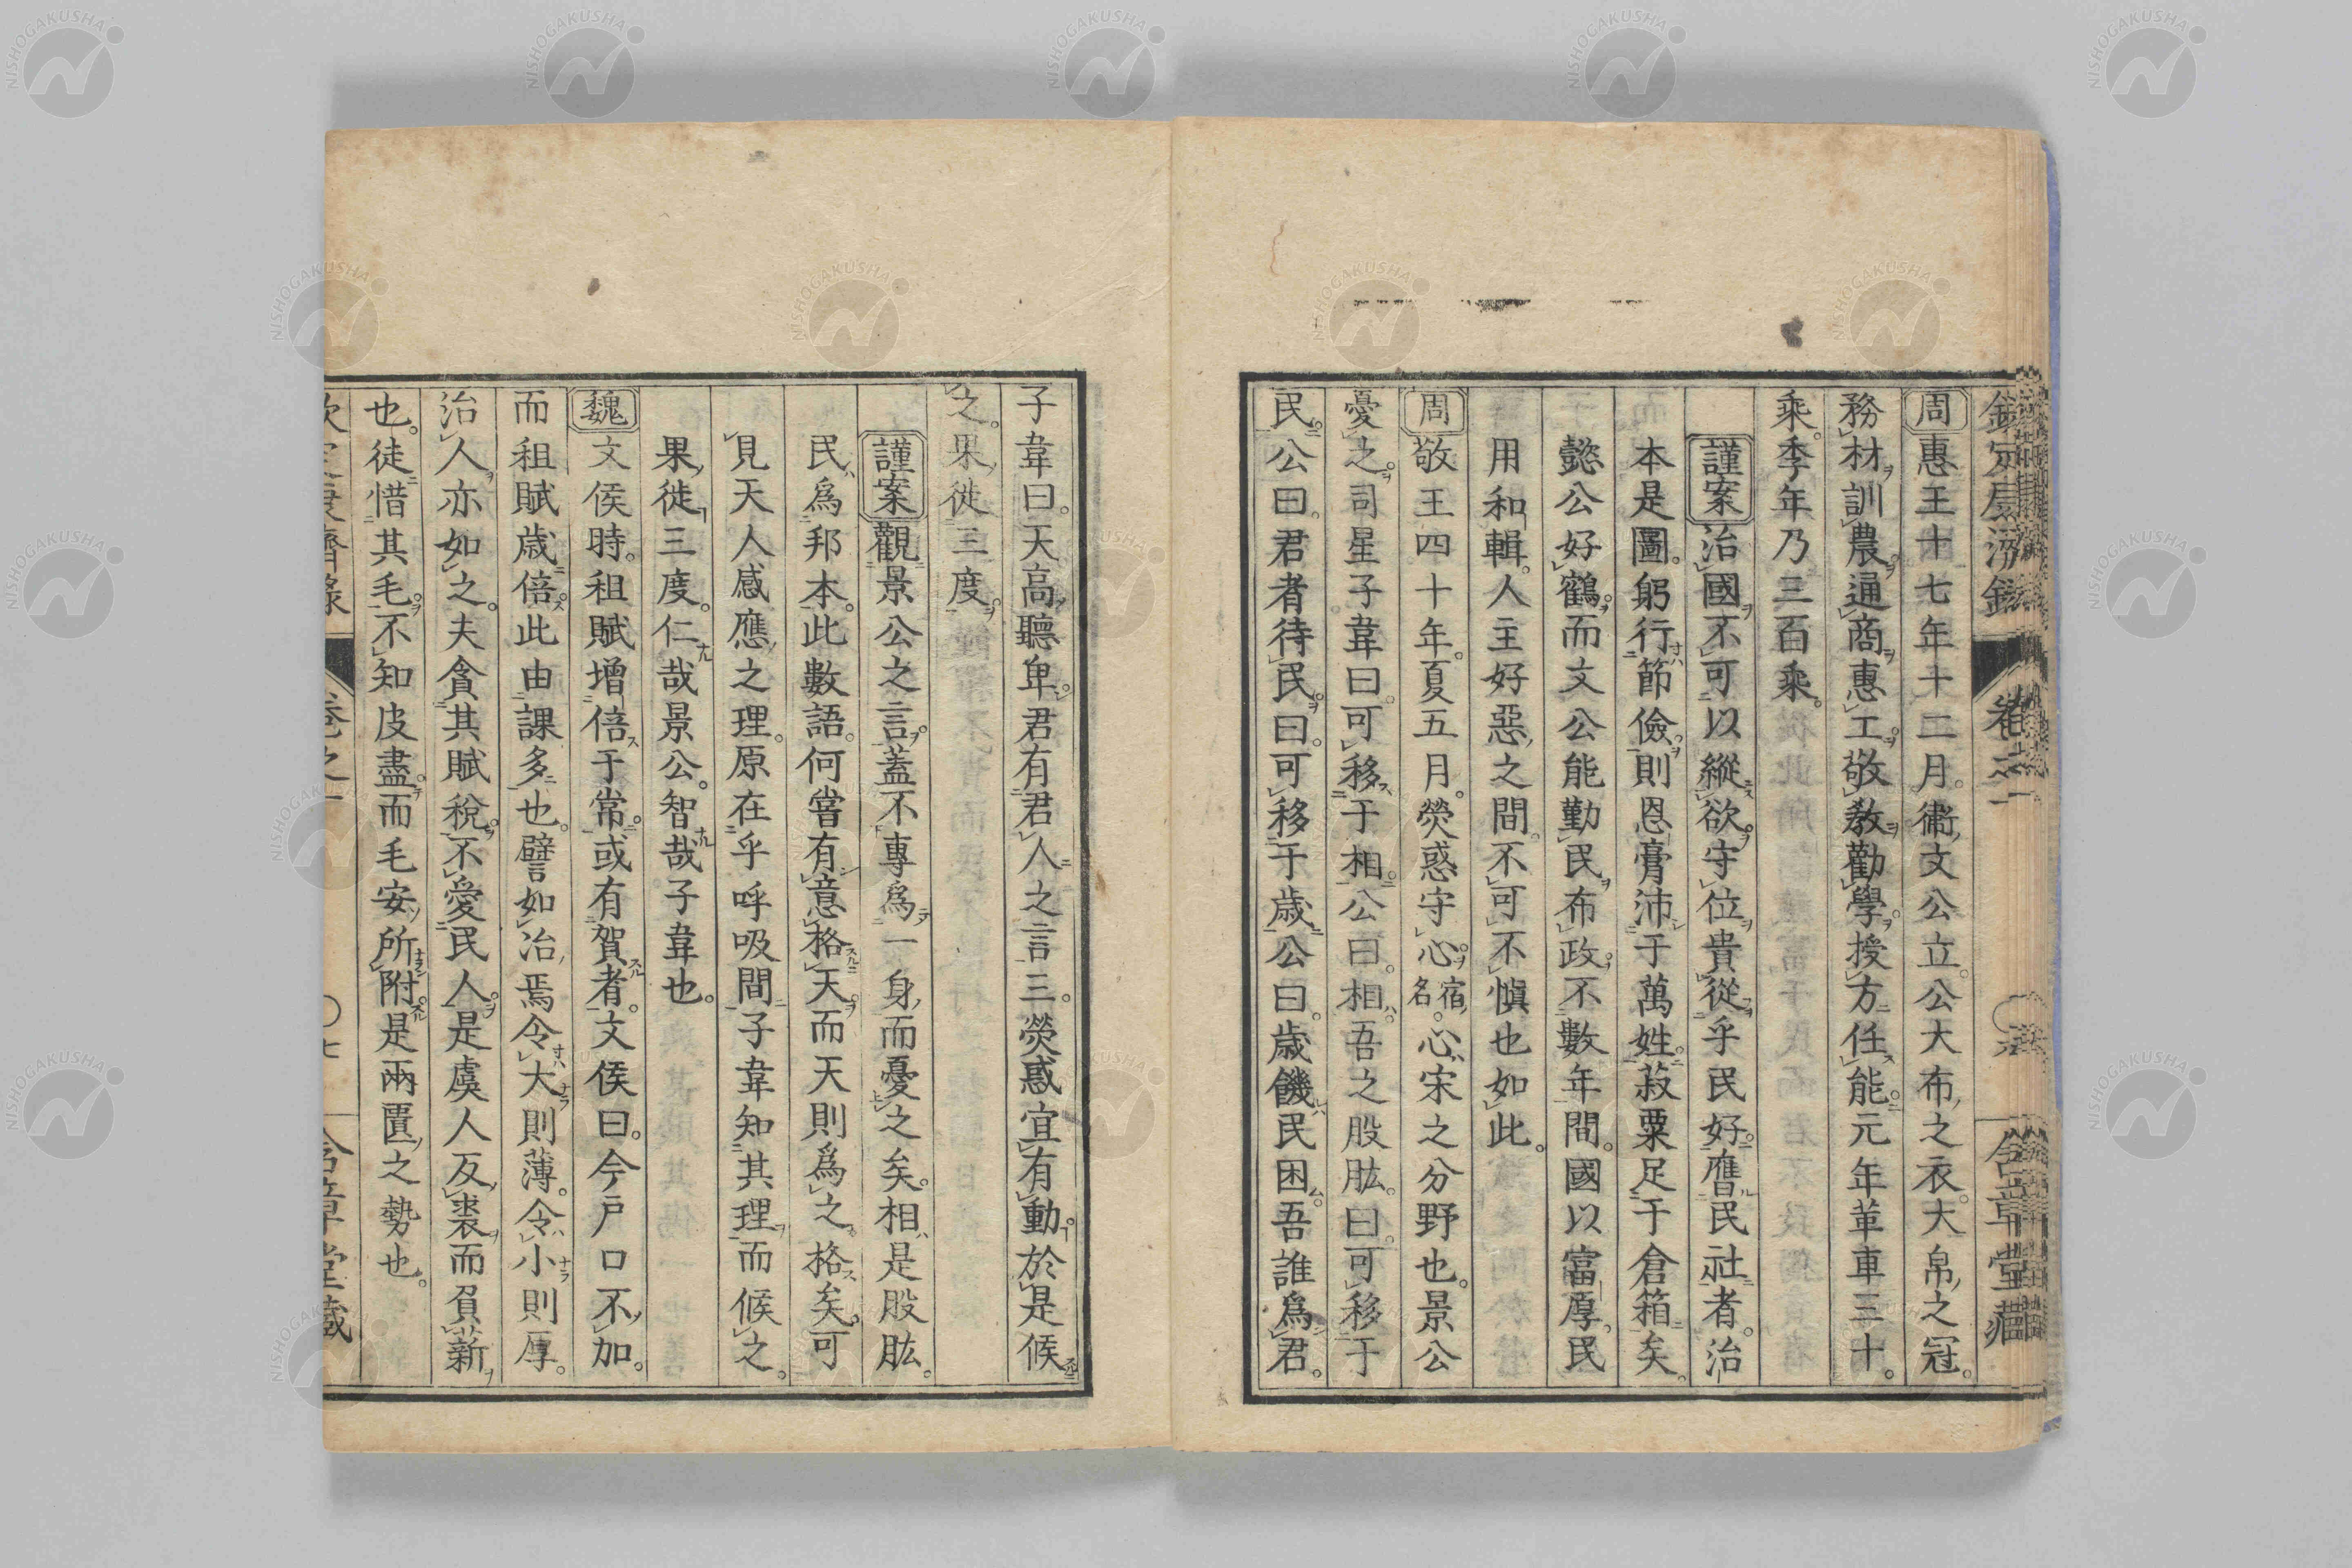 周惠王十七年十二月。衞文公立。公大布之衣。大帛之冠。
務材訓農。通商惠工。敬敎勸學。授方任能。元年革車三十。
乘。季年乃三百乘。
謹案治國不可以縱欲。守位貴從乎民好。膺民社者。治
本是圖。躬行節儉。則恩膏沛于萬姓。菽粟足于倉箱矣。
懿公好鶴。而文公能勤民布政。不數年間。國以富厚。民
用和輯。人主好惡之間。不可不愼也如此。
周敬王四十年。夏五月。熒惑守心。宿名。心宋之分野也。景公
憂之。司星子韋曰。可移于相。公曰。相吾之股肱。曰。可移于
民。公曰。君者待民。曰。可移于歲。公曰。歲饑民困。吾誰爲君。
子韋曰。天高聽卑。君有君人之言三。熒惑宜有動。於是候
之。果徙三度。
謹案觀景公之言。蓋不專爲一身而憂之矣。相是股肱。
民爲邦本。此數語。何嘗有意格天。而天則爲之格矣。可
見天人感應之理。原在乎呼吸間。子韋知其理而候之。
果徙三度。仁哉景公。智哉子韋也。
魏文侯時。租賦增倍于常。或有賀者。文侯曰。今戶口不加。
而租賦歲倍。此由課多也。譬如冶焉。令大則薄。令小則厚。
治人亦如之。夫貪其賦稅。不愛民人。是虞人反裘而負薪
也。徒惜其毛。不知皮盡。而毛安所附。是兩匱之勢也。
卷之一
七
含章堂藏